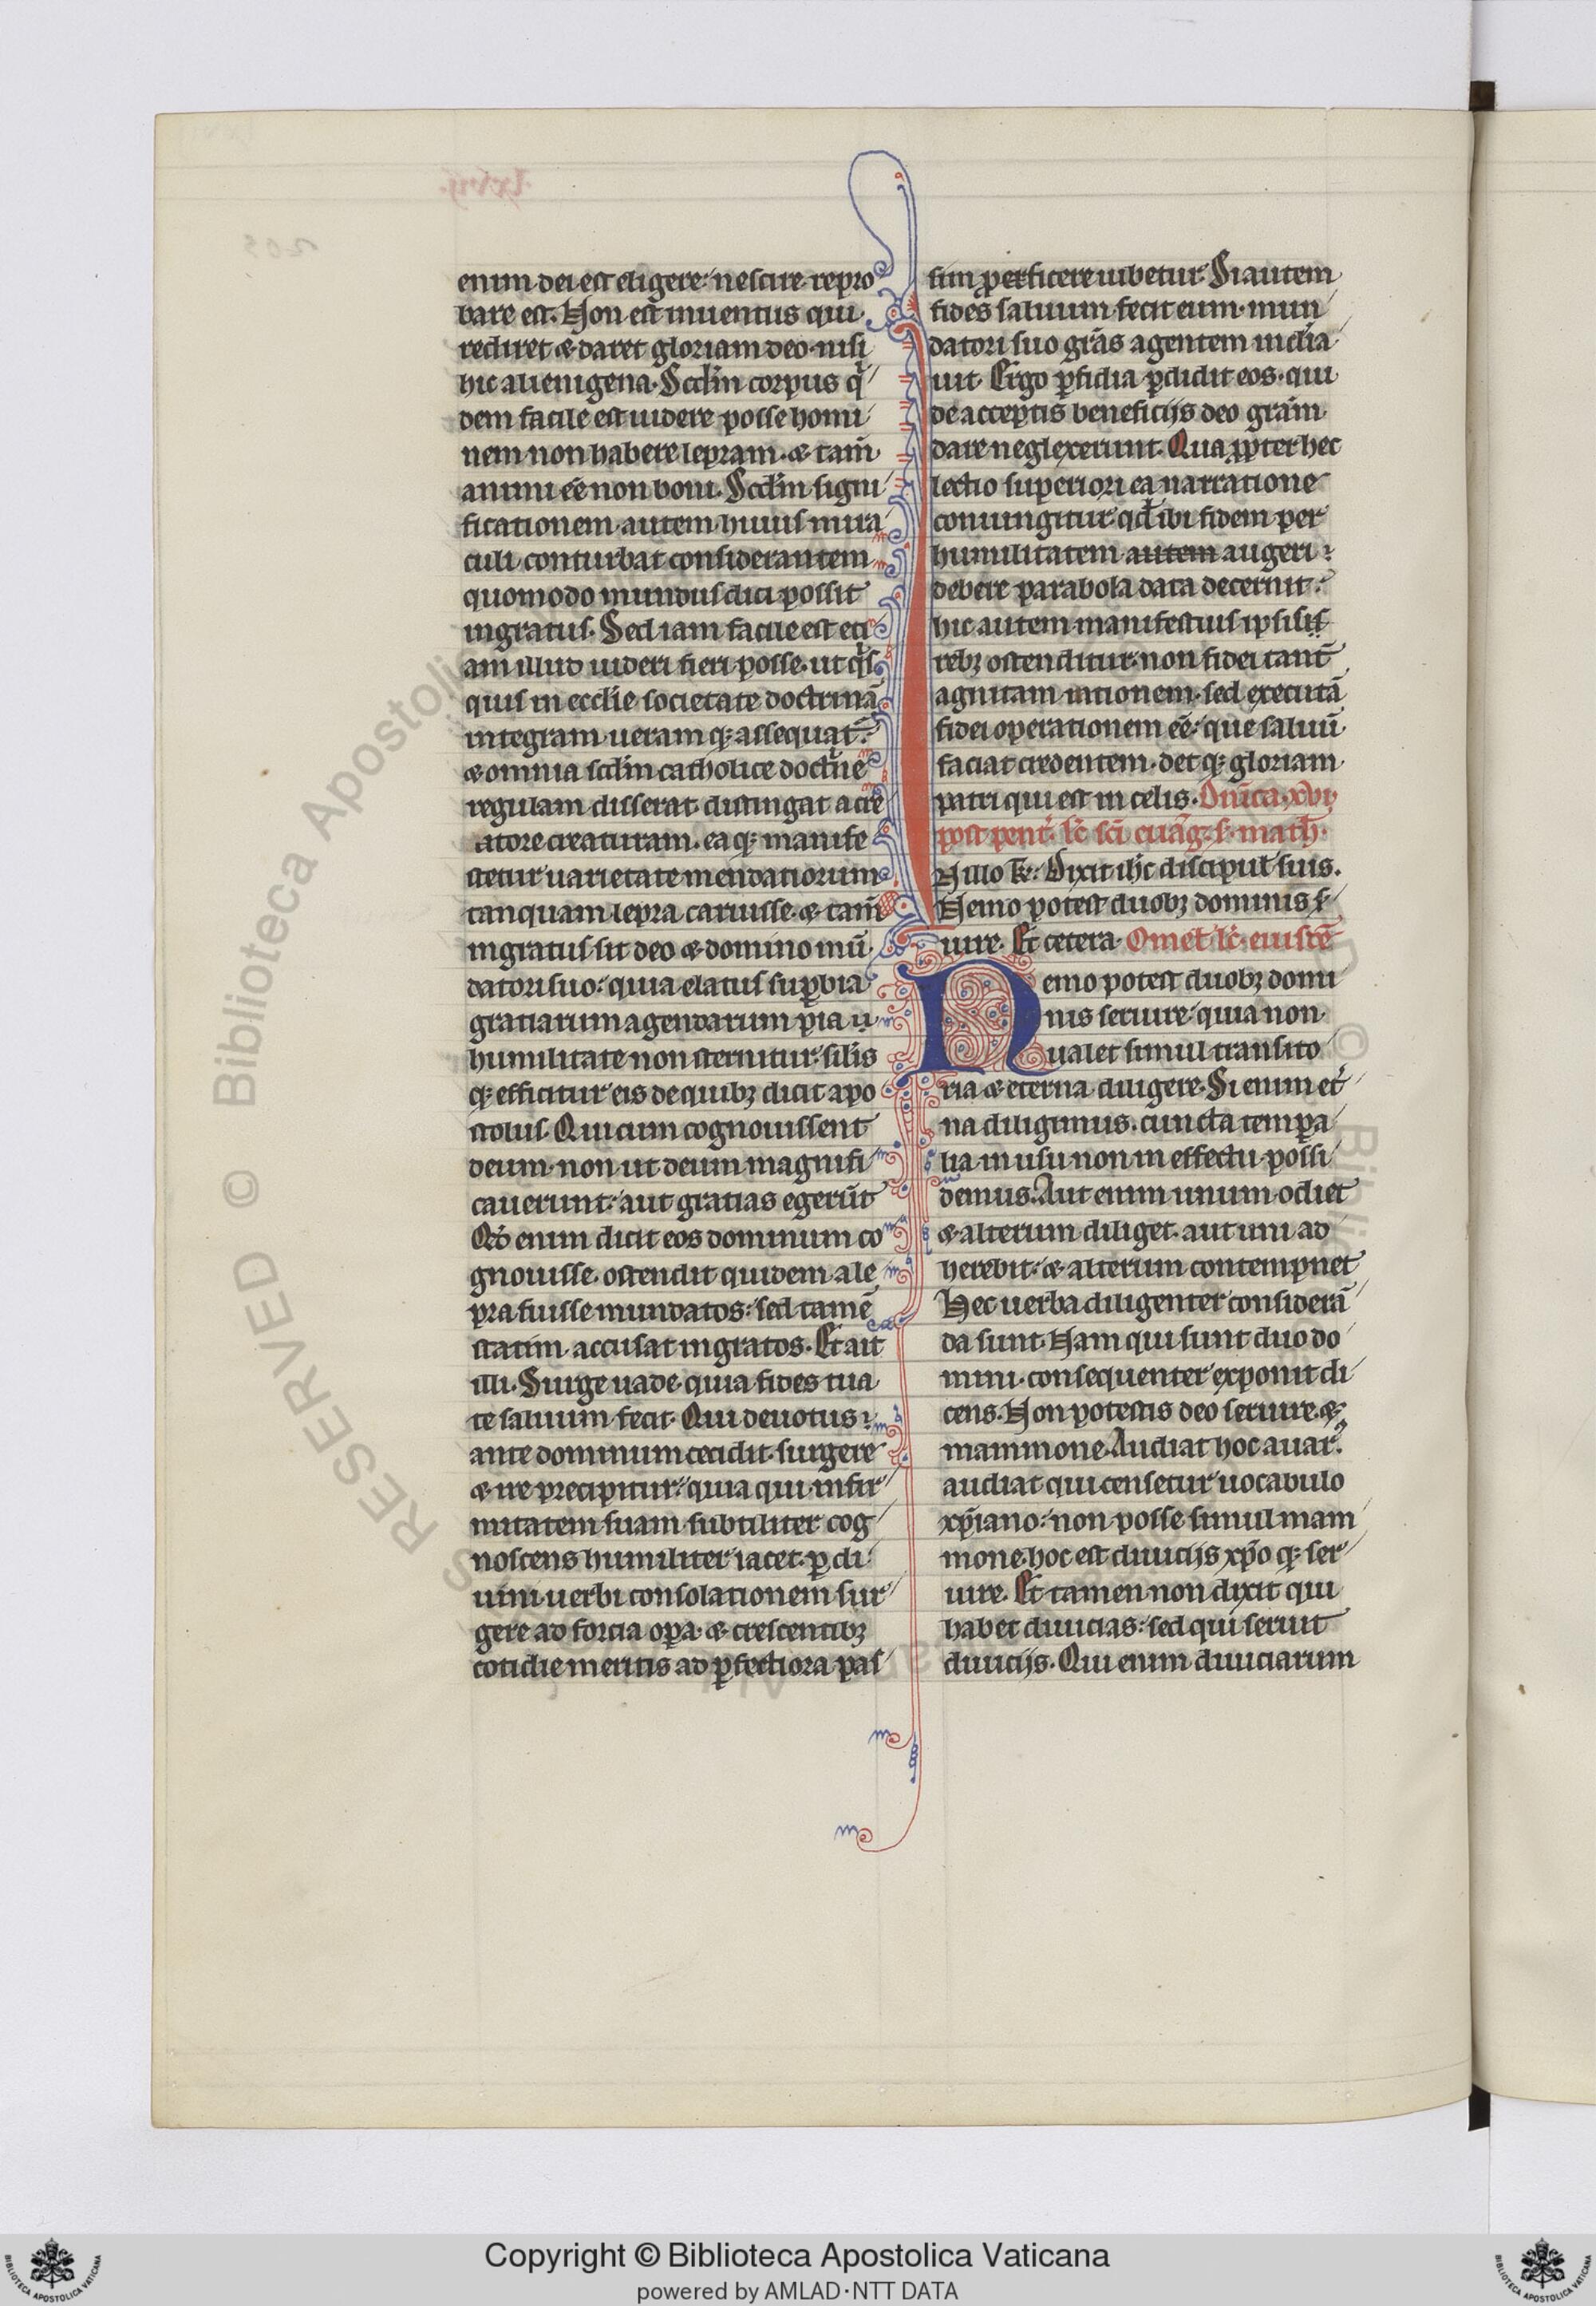 enim dei est eligere: nescire repro
bare est. Non est inuentus qui
rediret & daret gloriam deo nisi
hic alienigena. Scdm corpus q
dem facile est uidere posse homi
nem non habere lepram. & tam̄
animi eē non boni. Scdm signi
ficationem autem huius mira
culi conturbat considerantem
quomodo mundus dici possit
ingratus. Sed iam facile est eti
am illud uideri fieri posse. ut q̄s
quis in ecclie societate doctrinā
integram ueram q; assequat̄:
& omnia scdm catholice doctne
regulam disserat distingat a cre
atore creaturam. ea q; manife
stetur uarietate mendatiorum
tanquam lepra caruisse. & tam̄
ingratus sit deo & domino mū
datori suo: quia elatus suꝑbia
gratiarum agendarum pia
humilitate non sternitur: silis
q; efficitur eis de quibꝫ dicit apo
stolus. Qui cum cognouissent
deum non ut deum magnifi
cauerunt: aut gratias egerūt
Qd enim dicit eos dominum co
gnouisse. ostendit quidem a le
pra fuisse mundatos: sed tamē
statim accusat ingratos. Et ait
illi. Surge uade quia fides tua
te saluum fecit. Qui deuotus
ante dominum cecidit. surgere
& ire precipitur: quia qui infir
mitatem suam subtiliter cog
noscens humiliter iacet. ꝑ di
uini uerbi consolationem sur
gere ad forcia oꝑa. & crescentibꝫ
cotidie meritis ad ꝑfectiora pas
sim perficere iubetur. Si autem
fides saluum fecit eum. mun
datori suo gr̄as agentem inclīa
uit. Ergo ꝑfidia ꝑdidit eos. qui
de acceptis beneficijs deo gram
dare neglexerunt. Qua ꝓpter hec
lectio superiori ea narratione
coniungitur. qd ibi fidem per
humilitatem autem augeri
debere parabola data decernit:
hic autem manifestius ipsis
rebꝫ ostenditur. non fidei tant̄
agnitam rationem. sed executā
fidei operationem eē: que saluū
faciat credentem. det q; gloriam
patri qui est in celis. Dn̄ica xvi
post pent̄. lc̄ sci euāg. s. math.
N illo t̄. Dixit ihc discipul suis.
Nemo potest duobꝫ dominis s
uire. Et cetera. Omel lc̄ eiusdē
Nemo potest duobꝫ domi
nis seruire quia non
ualet simul transito
ria & eterna diligere. Si enim et
na diligimus. cuncta tempa
lia in usu non in effectu possi
demus. Aut enim unum odiet
& alterum diliget. aut uni ad
herebit: & alterum contempnet
Hec uerba diligenter considerā
da sunt. Nam qui sunt duo do
mini. consequenter exponit di
cens. Non potestis deo seruire. &
mammone. Audiat hoc auar
audiat qui censetur uocabulo
xp̄iano: non posse simul mam
mone. hoc est diuicijs xp̄o q; ser
uire. Et tamen non dixit qui
habet diuicias: sed qui seruit
diuicijs. Qui enim diuiciarum
© Biblioteca Apostolica
RESERVED
Copyright © Biblioteca Apostolica Vaticana
powered by AMLAD·NTT DATA
BIBLIOTECA APOSTOLICA VATICANA
BIBLIOTECA APOSTOLICA VATICANA